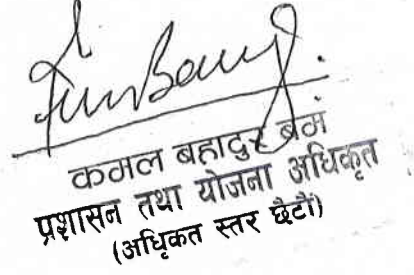 कमल बहादुर बम
प्रशासन तथा योजना अधिकृत
(अधिकृत स्तर छैटौं)